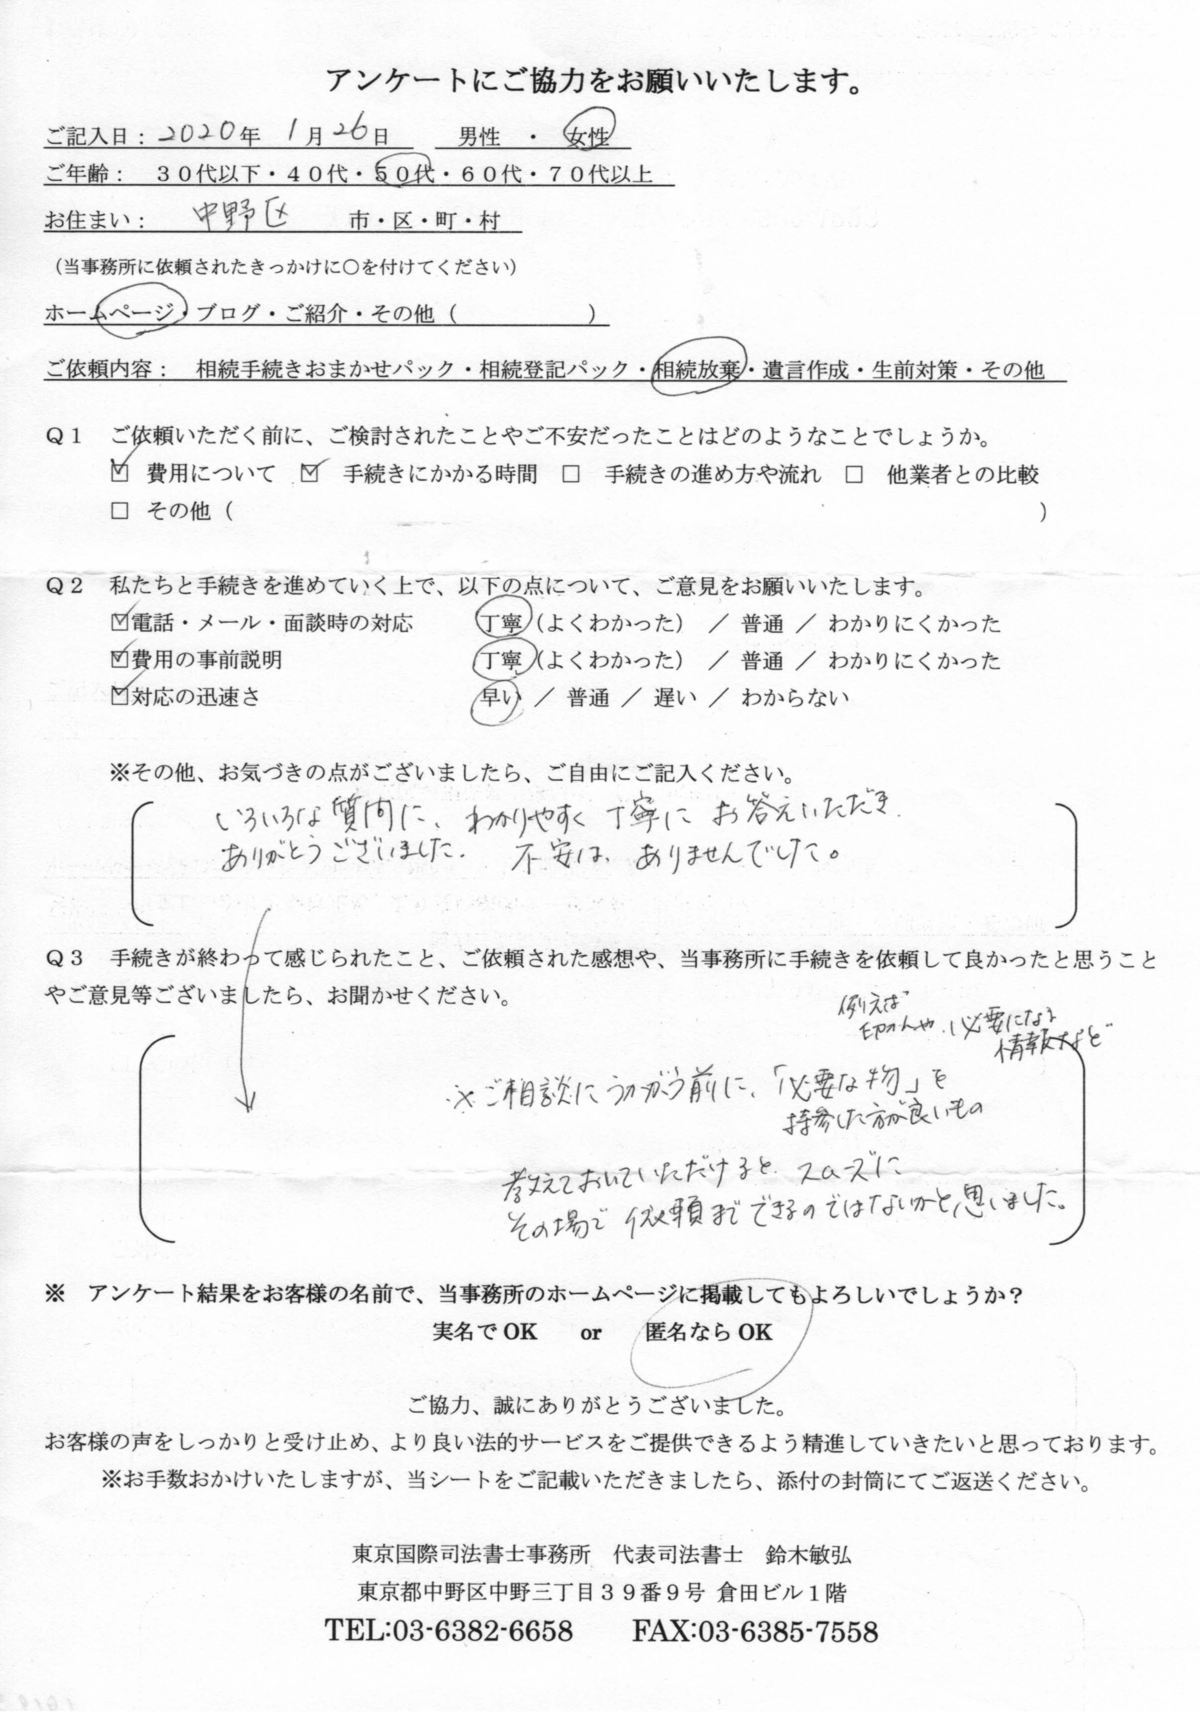 アンケートにご協力をお願いいたします。
ご記入日：2020年 1月26日 男性 ・ 女性
ご年齢： ３０代以下・４０代・５０代・６０代・７０代以上
お住まい： 中野区 市・区・町・村
（当事務所に依頼されたきっかけに〇を付けてください）
ホームページ・ブログ・ご紹介・その他（ ）
ご依頼内容： 相続手続きおまかせパック・相続登記パック・相続放棄・遺言作成・生前対策・その他
Ｑ１ ご依頼いただく前に、ご検討されたことやご不安だったことはどのようなことでしょうか。
☑ 費用について ☑ 手続きにかかる時間 □ 手続きの進め方や流れ □ 他業者との比較
□ その他（ ）
Ｑ２ 私たちと手続きを進めていく上で、以下の点について、ご意見をお願いいたします。
☑電話・メール・面談時の対応 丁寧（よくわかった） ／ 普通 ／ わかりにくかった
☑費用の事前説明 丁寧（よくわかった） ／ 普通 ／ わかりにくかった
☑対応の迅速さ 早い ／ 普通 ／ 遅い ／ わからない
※その他、お気づきの点がございましたら、ご自由にご記入ください。
いろいろな質問に、わかりやすく丁寧にお答えいただき
ありがとうございました。 不安は、ありませんでした。
Ｑ３ 手続きが終わって感じられたこと、ご依頼された感想や、当事務所に手続きを依頼して良かったと思うこと
やご意見等ございましたら、お聞かせください。
例えば
印かんや、必要になる
情報など
※ご相談にうかがう前に、「必要な物」を
持参した方が良いもの
教えておいていただけると、スムーズに
その場で依頼までできるのではないかと思いました。
※ アンケート結果をお客様の名前で、当事務所のホームページに掲載してもよろしいでしょうか？
実名でOK or 匿名ならOK
ご協力、誠にありがとうございました。
お客様の声をしっかりと受け止め、より良い法的サービスをご提供できるよう精進していきたいと思っております。
※お手数おかけいたしますが、当シートをご記載いただきましたら、添付の封筒にてご返送ください。
東京国際司法書士事務所 代表司法書士 鈴木敏弘
東京都中野区中野三丁目３９番９号 倉田ビル１階
TEL:03-6382-6658 FAX:03-6385-7558